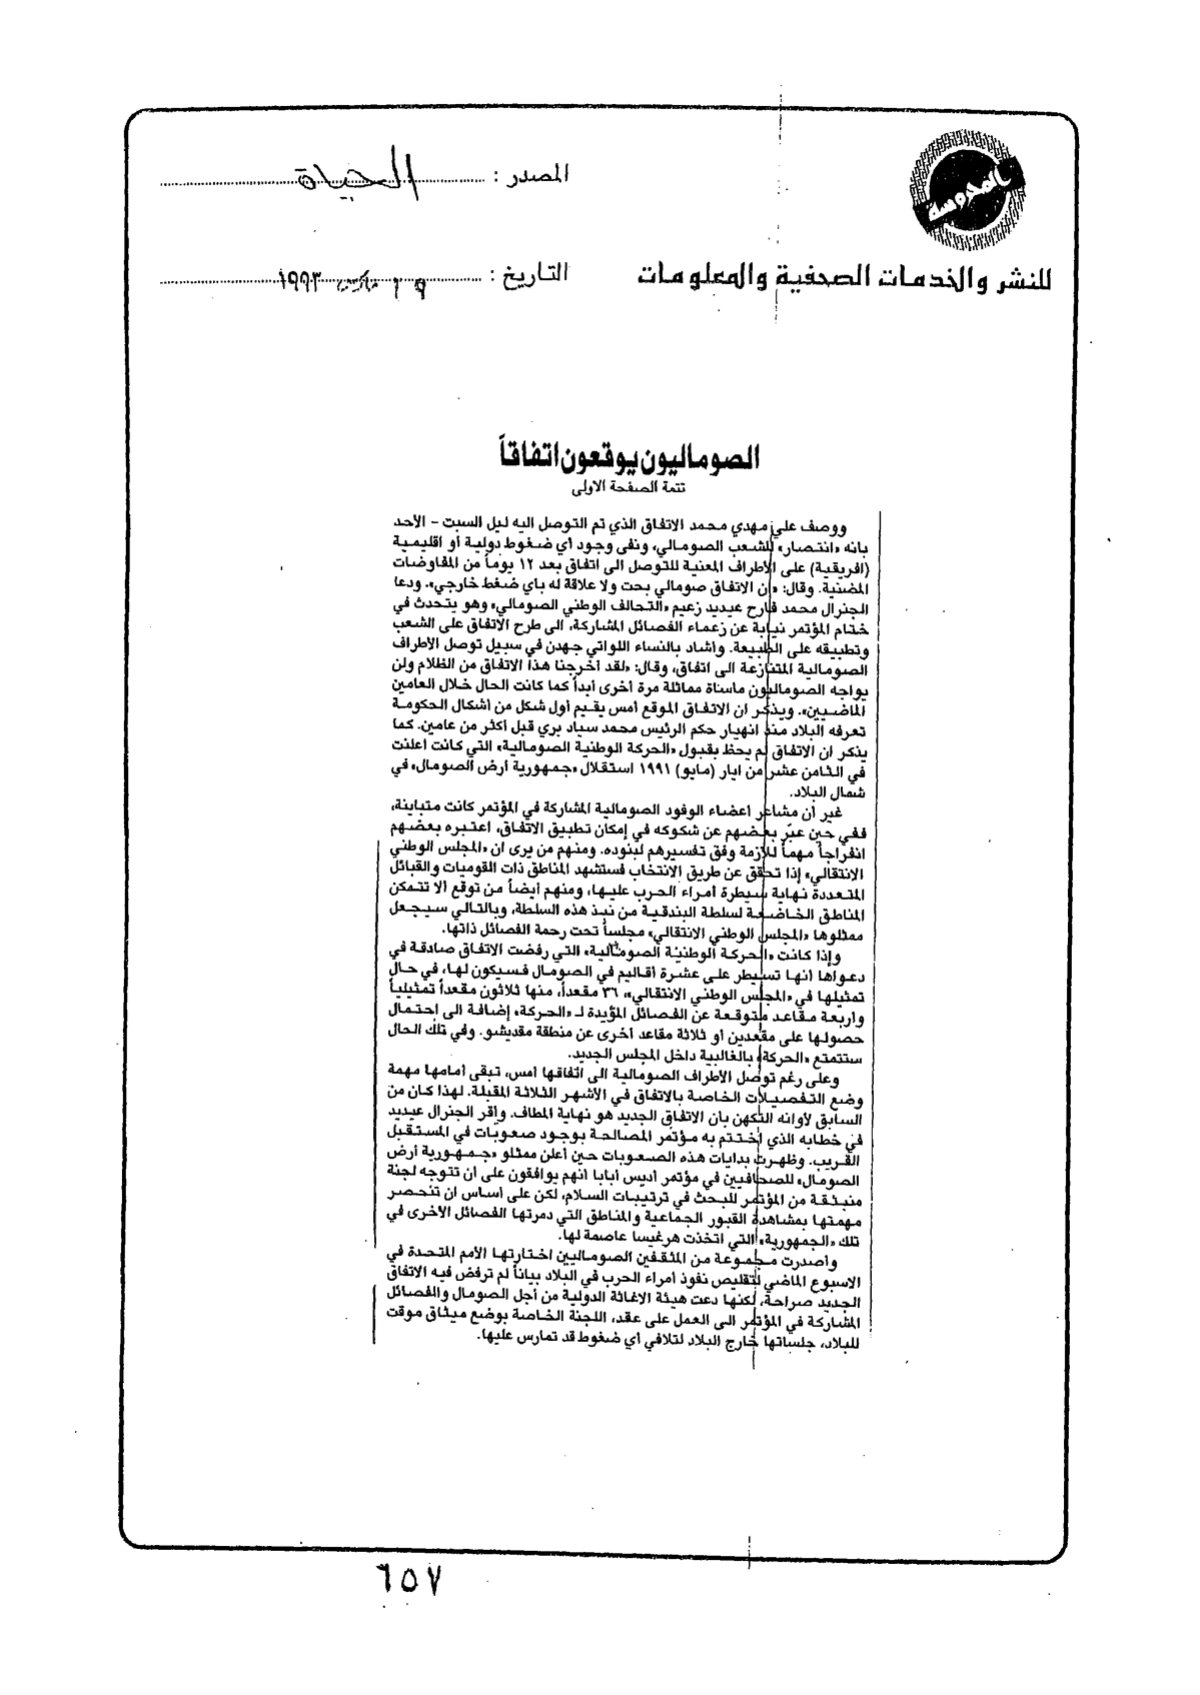 المصدر : الحياة
بالمحروسة
للنشر والخدمات الصحفية والمعلومات
التاريخ : ٢٩ مارس ١٩٩٣
الصوماليون يوقعون اتفاقاً
تتمة الصفحة الاولى
ووصف علي مهدي محمد الاتفاق الذي تم التوصل اليه ليل السبت - الأحد
بانه «انتصار» للشعب الصومالي، ونفى وجود أي ضغوط دولية أو اقليمية
(افريقية) على الأطراف المعنية للتوصل الى اتفاق بعد ١٢ يوماً من المفاوضات
المضنية. وقال: «إن الاتفاق صومالي بحت ولا علاقة له باي ضغط خارجي». ودعا
الجنرال محمد فارح عيديد زعيم «التحالف الوطني الصومالي» وهو يتحدث في
ختام المؤتمر نيابة عن زعماء الفصائل المشاركة، الى طرح الاتفاق على الشعب
وتطبيقه على الطبيعة. وأشاد بالنساء اللواتي جهدن في سبيل توصل الأطراف
الصومالية المتنازعة الى اتفاق، وقال: «لقد أخرجنا هذا الاتفاق من الظلام ولن
يواجه الصوماليون ماساة مماثلة مرة أخرى أبداً كما كانت الحال خلال العامين
الماضيين». ويذكر ان الاتفاق الموقع أمس يقيم أول شكل من أشكال الحكومة
تعرفه البلاد منذ انهيار حكم الرئيس محمد سياد بري قبل أكثر من عامين. كما
يذكر ان الاتفاق لم يحظ بقبول «الحركة الوطنية الصومالية» التي كانت أعلنت
في الثامن عشر من ايار (مايو) ١٩٩١ استقلال «جمهورية أرض الصومال» في
شمال البلاد.
غير أن مشاعر اعضاء الوفود الصومالية المشاركة في المؤتمر كانت متباينة،
ففي حين عبّر بعضهم عن شكوكه في إمكان تطبيق الاتفاق، اعتبره بعضهم
انفراجاً مهماً للأزمة وفق تفسيرهم لبنوده. ومنهم من يرى ان «المجلس الوطني
الانتقالي» إذا تحقق عن طريق الانتخاب فستشهد المناطق ذات القوميات والقبائل
المتعددة نهاية سيطرة أمراء الحرب عليها، ومنهم أيضاً من توقع ألا تتمكن
المناطق الخاضعة لسلطة البندقية من نبذ هذه السلطة، وبالتالي سيجعل
ممثلوها «المجلس الوطني الانتقالي» مجلساً تحت رحمة الفصائل ذاتها.
وإذا كانت «الحركة الوطنية الصومالية» التي رفضت الاتفاق صادقة في
دعواها انها تسيطر على عشرة أقاليم في الصومال فسيكون لها، في حال
تمثيلها في «المجلس الوطني الانتقالي»، ٣٦ مقعداً، منها ثلاثون مقعداً تمثيلياً
واربعة مقاعد متوقعة عن الفصائل المؤيدة لـ «الحركة» إضافة الى احتمال
حصولها على مقعدين أو ثلاثة مقاعد أخرى عن منطقة مقديشو. وفي تلك الحال
ستتمتع «الحركة» بالغالبية داخل المجلس الجديد.
وعلى رغم توصل الأطراف الصومالية الى اتفاقها امس، تبقى أمامها مهمة
وضع التفصيلات الخاصة بالاتفاق في الأشهر الثلاثة المقبلة. لهذا كان من
السابق لأوانه التكهن بان الاتفاق الجديد هو نهاية المطاف. وأقر الجنرال عيديد
في خطابه الذي اختتم به مؤتمر المصالحة بوجود صعوبات في المستقبل
القريب. وظهرت بدايات هذه الصعوبات حين أعلن ممثلو «جمهورية أرض
الصومال» للصحافيين في مؤتمر أديس أبابا انهم يوافقون على ان تتوجه لجنة
منبثقة من المؤتمر للبحث في ترتيبات السلام، لكن على أساس ان تنحصر
مهمتها بمشاهدة القبور الجماعية والمناطق التي دمرتها الفصائل الأخرى في
تلك «الجمهورية» التي اتخذت هرغيسا عاصمة لها.
وأصدرت مجموعة من المثقفين الصوماليين اختارتها الأمم المتحدة في
الاسبوع الماضي لتقليص نفوذ امراء الحرب في البلاد بياناً لم ترفض فيه الاتفاق
الجديد صراحة، لكنها دعت هيئة الاغاثة الدولية من أجل الصومال والفصائل
المشاركة في المؤتمر الى العمل على عقد، اللجنة الخاصة بوضع ميثاق موقت
للبلاد، جلساتها خارج البلاد لتلافي أي ضغوط قد تمارس عليها.
٦٥٧